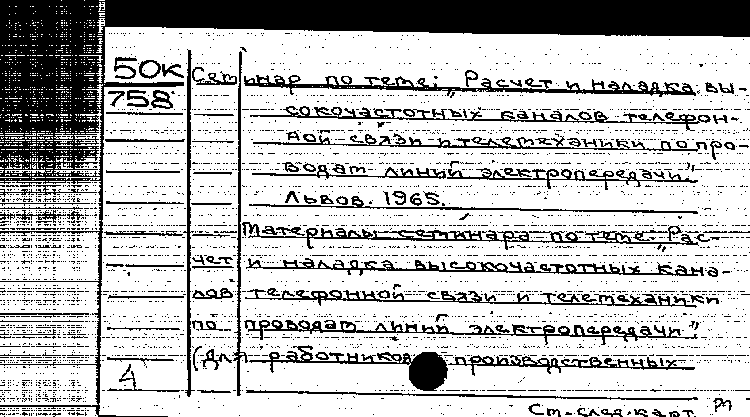 50К Семинар по теме: „Расчет и наладка вы-
758 сокочастотных каналов телефон-
ной связи и телемеханики по про-
водам линий электропередачи".
Львов. 1965.
Материалы семинара по теме: „Рас-
чет и наладка высокочастотных кана-
лов телефонной связи и телемеханики
по проводам линий электропередачи"
(для работников производственных
4
См. след. карт.